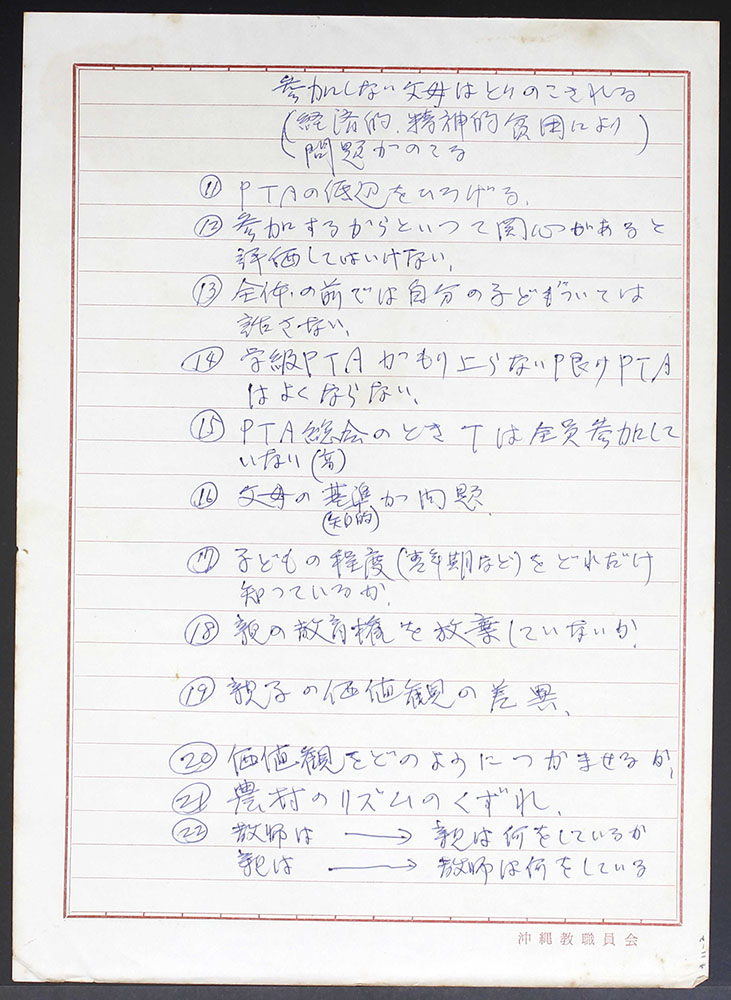 参加しない父母はとりのこされる
(経済的、精神的貧困により)
問題がのてる
⑪ PTAの底辺をひろげる、
⑫ 参加するからといって関心があると
評価してはいけない、
⑬ 全体の前では自分の子どもついては
話さない、
⑭ 学級PTAがもり上らない限りPTA
はよくならない、
⑮ PTA総会のときTは全員参加して
いない(高)
⑯ 父母の基準が問題
(知的)
⑰ 子どもの程度(青年期など)をどれだけ
知っているか、
⑱ 親の教育権を放棄していないか、
⑲ 親子の価値観の差異、
⑳ 価値観をどのようにつかませるか、
㉑ 農村のリズムのくずれ、
㉒ 教師は → 親は何をしているか
親は → 教師は何をしている
沖縄教職員会